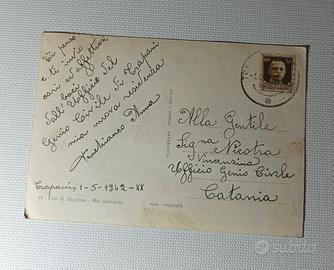 Ti penso
e ti invio
cari ed affettuosi
baci
dall'Ufficio del
Genio Civile di Trapani
mia nuova residenza
Anna
Trapani, 1-5-1942-XX
Alla Gentile
Signa Nicotra
Vincenzina
Ufficio Genio Civile
Catania
vera fotografia
subito